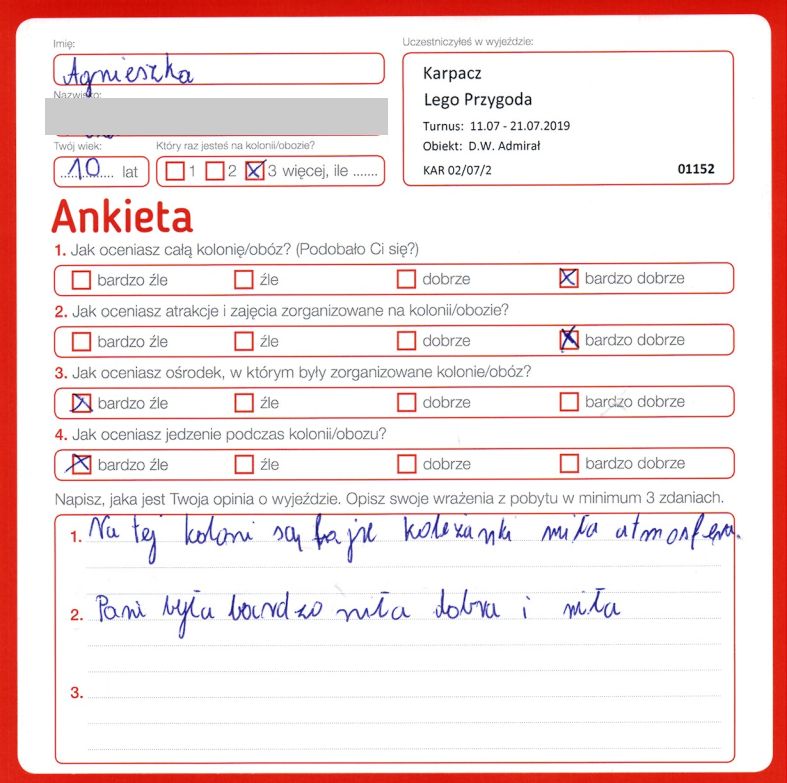 Imię:
Uczestniczyłeś w wyjeździe:
Agnieszka
Karpacz
Lego Przygoda
Nazwisko:
Turnus: 11.07 - 21.07.2019
Obiekt: D.W. Admirał
KAR 02/07/2 01152
Twój wiek:
Który raz jesteś na kolonii/obozie?
10 lat
1 2 3 więcej, ile .......
Ankieta
1. Jak oceniasz całą kolonię/obóz? (Podobało Ci się?)
bardzo źle źle dobrze bardzo dobrze
2. Jak oceniasz atrakcje i zajęcia zorganizowane na kolonii/obozie?
bardzo źle źle dobrze bardzo dobrze
3. Jak oceniasz ośrodek, w którym były zorganizowane kolonie/obóz?
bardzo źle źle dobrze bardzo dobrze
4. Jak oceniasz jedzenie podczas kolonii/obozu?
bardzo źle źle dobrze bardzo dobrze
Napisz, jaka jest Twoja opinia o wyjeździe. Opisz swoje wrażenia z pobytu w minimum 3 zdaniach.
1. Na tej koloni są fajne koleżanki miła atmosfera.
2. Pani była bardzo miła dobra i miła
3.